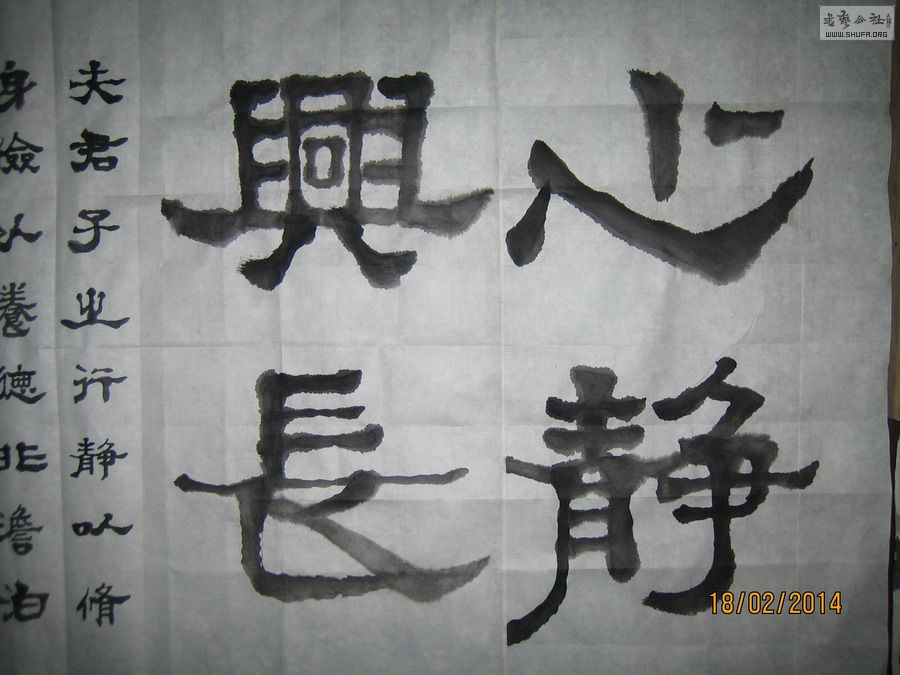 心静
興長
夫君子之行静以脩
身儉以養德非澹泊
書藝公社
WWW.SHUFA.ORG
18/02/2014